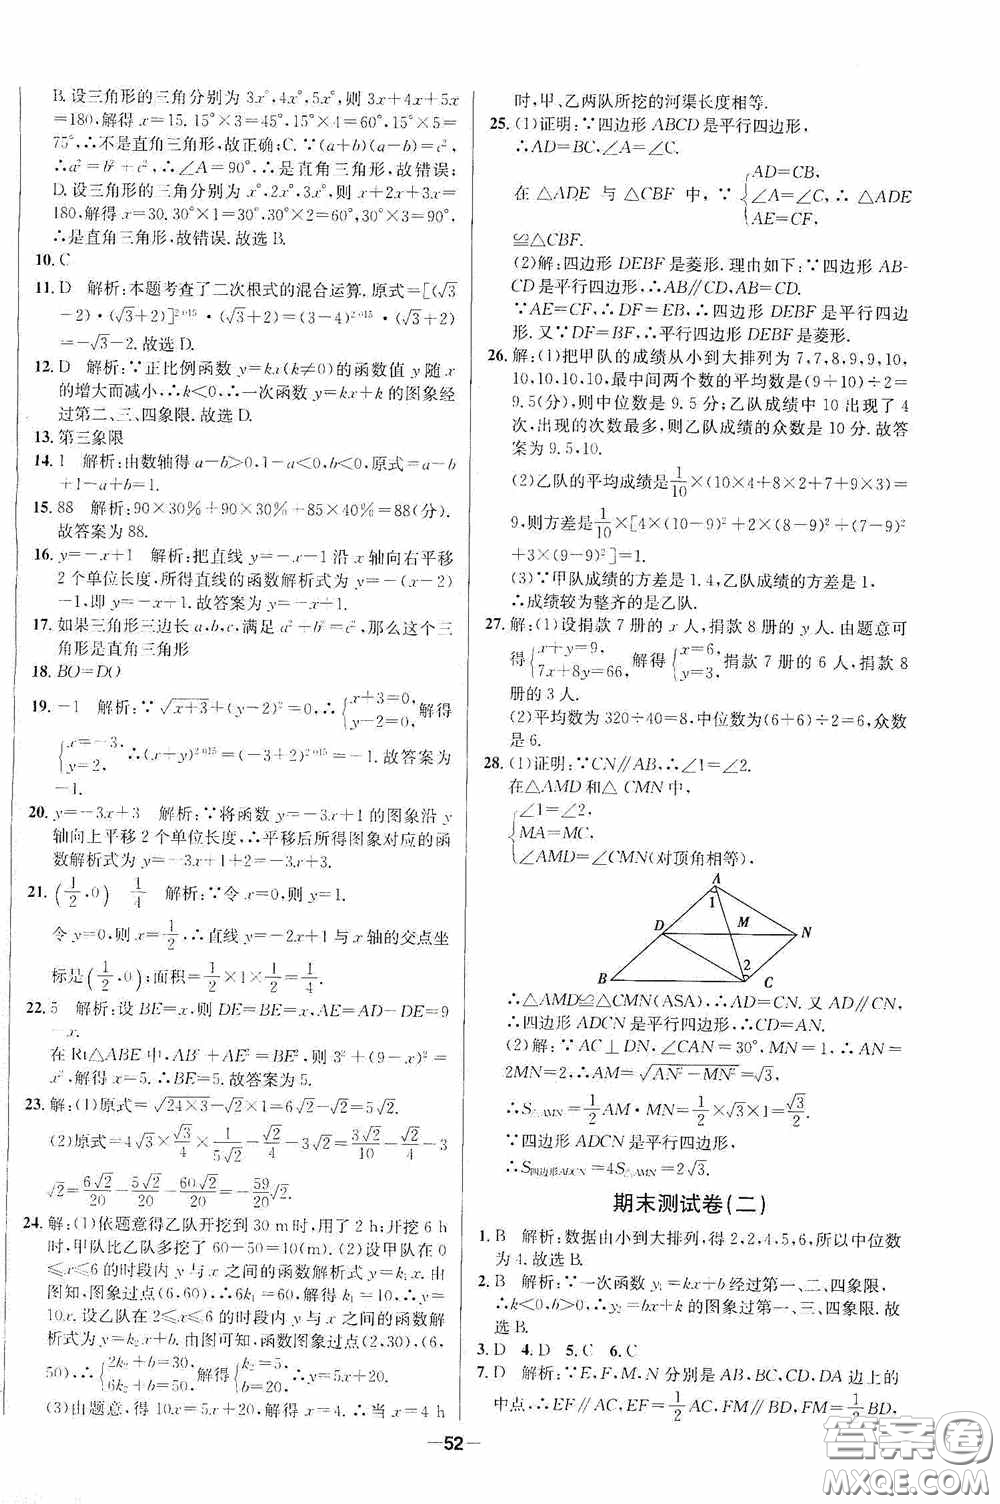 B. 设三角形的三角分别为 3x°,4x°,5x°,则 3x+4x+5x
=180,解得 x=15. 15°×3=45°,15°×4=60°,15°×5=
75°,∴不是直角三角形,故正确;C. ∵(a+b)(a-b)=c²,
∴a²=b²+c²,∴∠A=90°,∴是直角三角形,故错误;
D. 设三角形的三角分别为 x°,2x°,3x°,则 x+2x+3x=
180,解得 x=30. 30°×1=30°,30°×2=60°,30°×3=90°,
∴是直角三角形,故错误. 故选 B.
10. C
11. D 解析:本题考查了二次根式的混合运算. 原式=[(√3
-2)·(√3+2)]²⁰¹⁵·(√3+2)=(3-4)²⁰¹⁵·(√3+2)
=-√3-2. 故选 D.
12. D 解析:∵正比例函数 y=kx(k≠0)的函数值 y 随 x
的增大而减小,∴k<0,∴一次函数 y=kx+k 的图象经
过第二、三、四象限. 故选 D.
13. 第三象限
14. 1 解析:由数轴得 a-b>0,1-a<0,b<0,原式=a-b
+1-a+b=1.
15. 88 解析:90×30%+90×30%+85×40%=88(分).
故答案为 88.
16. y=-x+1 解析:把直线 y=-x-1 沿 x 轴向右平移
2 个单位长度,所得直线的函数解析式为 y=-(x-2)
-1,即 y=-x+1. 故答案为 y=-x+1.
17. 如果三角形三边长 a,b,c,满足 a²+b²=c²,那么这个三
角形是直角三角形
18. BO=DO
19. -1 解析:∵√(x+3)+(y-2)²=0,∴{x+3=0, y-2=0, 解得
{x=-3, y=2, ∴(x+y)²⁰¹⁵=(-3+2)²⁰¹⁵=-1. 故答案为
-1.
20. y=-3x+3 解析:∵将函数 y=-3x+1 的图象沿 y
轴向上平移 2 个单位长度,∴平移后所得图象对应的函
数解析式为 y=-3x+1+2=-3x+3.
21. (1/2,0) 1/4 解析:∵令 x=0,则 y=1,
令 y=0,则 x=1/2,∴直线 y=-2x+1 与 x 轴的交点坐
标是(1/2,0);面积=1/2×1×1/2=1/4
22. 5 解析:设 BE=x,则 DE=BE=x,AE=AD-DE=9
-x.
在 Rt△ABE 中,AB²+AE²=BE²,则 3²+(9-x)²=
x²,解得 x=5. ∴BE=5. 故答案为 5.
23. 解:(1)原式=√(24×3)-√2×1=6√2-√2=5√2.
(2)原式=4√3×√3/4×1/(5√2)-√2/4-3√2=3√2/10-√2/4-3
√2=6√2/20-5√2/20-60√2/20=-59/20√2.
24. 解:(1)依题意得乙队开挖到 30 m时,用了 2 h;开挖 6 h
时,甲队比乙队多挖了 60-50=10(m). (2)设甲队在 0
≤x≤6 的时段内 y 与 x 之间的函数解析式为 y=k₁x. 由
图知,图象过点(6,60),∴6k₁=60,解得 k₁=10,∴y=
10x. 设乙队在 2≤x≤6 的时段内 y 与 x 之间的函数解
析式为 y=k₂x+b. 由图可知,函数图象过点(2,30),(6,
50),∴{2k₂+b=30, 6k₂+b=50, 解得{k₂=5, b=20, ∴y=5x+20.
(3)由题意,得 10x=5x+20,解得 x=4. ∴当 x=4 h
时,甲、乙两队所挖的河渠长度相等.
25. (1)证明:∵四边形 ABCD 是平行四边形,
∴AD=BC,∠A=∠C.
在 △ADE 与 △CBF 中,∵{AD=CB, ∠A=∠C, AE=CF, ∴△ADE
≌△CBF.
(2)解:四边形 DEBF 是菱形. 理由如下:∵四边形 AB-
CD 是平行四边形,∴AB∥CD,AB=CD.
∵AE=CF,∴DF=EB,∴四边形 DEBF 是平行四边
形. 又∵DF=BF,∴平行四边形 DEBF 是菱形.
26. 解:(1)把甲队的成绩从小到大排列为 7,7,8,9,9,10,
10,10,10,10,最中间两个数的平均数是(9+10)÷2=
9.5(分),则中位数是 9.5 分;乙队成绩中 10 出现了 4
次,出现的次数最多,则乙队成绩的众数是 10 分. 故答
案为 9.5,10.
(2)乙队的平均成绩是1/10×(10×4+8×2+7+9×3)=
9,则方差是1/10×[4×(10-9)²+2×(8-9)²+(7-9)²
+3×(9-9)²]=1.
(3)∵甲队成绩的方差是 1.4,乙队成绩的方差是 1,
∴成绩较为整齐的是乙队.
27. 解:(1)设捐款 7 册的 x 人,捐款 8 册的 y 人. 由题意可
得{x+y=9, 7x+8y=66, 解得{x=6, y=3, 捐款 7 册的 6 人,捐款 8
册的 3 人.
(2)平均数为 320÷40=8,中位数为(6+6)÷2=6,众数
是 6.
28. (1)证明:∵CN∥AB,∴∠1=∠2.
在△AMD 和△CMN 中,
{∠1=∠2,
MA=MC,
∠AMD=∠CMN(对顶角相等),
A
1
D
M
N
2
B
C
∴△AMD≌△CMN(ASA),∴AD=CN. 又 AD∥CN,
∴四边形 ADCN 是平行四边形,∴CD=AN.
(2)解:∵AC⊥DN,∠CAN=30°,MN=1,∴AN=
2MN=2,∴AM=√(AN²-MN²)=√3,
∴S△AMN=1/2AM·MN=1/2×√3×1=√3/2.
∵四边形 ADCN 是平行四边形,
∴S四边形ADCN=4S△AMN=2√3.
期末测试卷(二)
1. B 解析:数据由小到大排列,得 2,2,4,5,6,所以中位数
为 4. 故选 B.
2. B 解析:∵一次函数 y₁=kx+b 经过第一、二、四象限,
∴k<0,b>0,∴y₂=bx+k 的图象经过第一、三、四象限. 故
选 B.
3. D 4. D 5. C 6. C
7. D 解析:∵E,F,M,N 分别是 AB,BC,CD,DA 边上的
中点,∴EF∥AC,EF=1/2AC,FM∥BD,FM=1/2BD,
—52—
答案圈
MXQE.COM